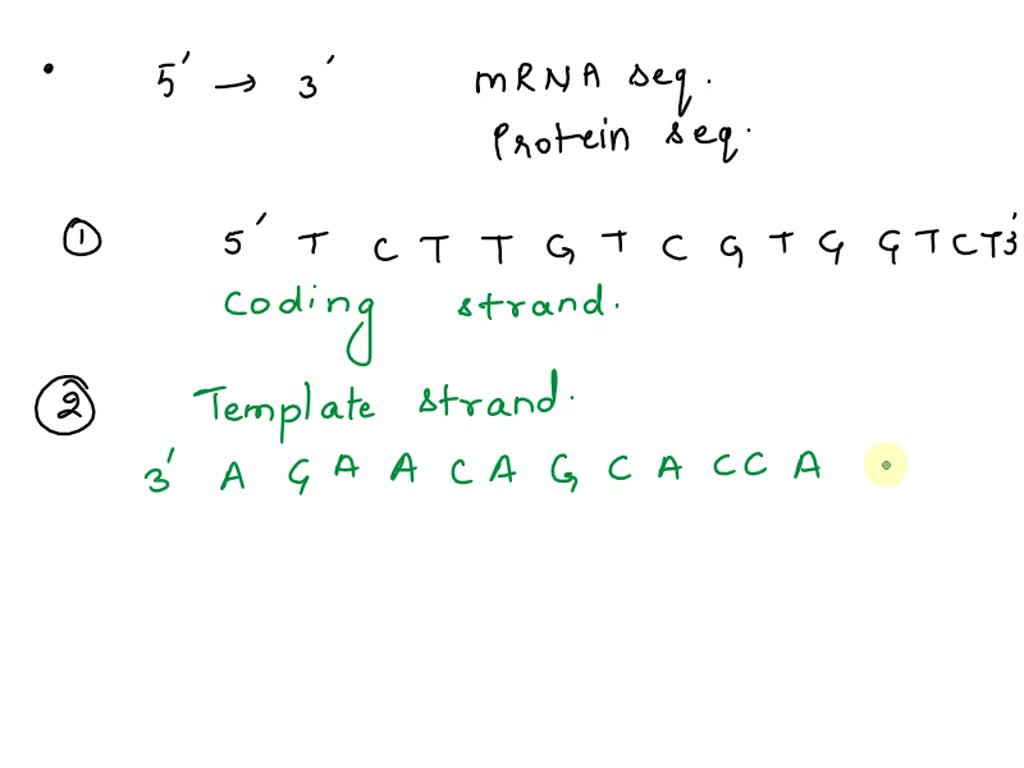 • 5' → 3' mRNA seq.
Protein seq.
① 5' T C T T G T C G T G G T C T 3'
Coding strand.
② Template strand.
3' A G A A C A G C A C C A